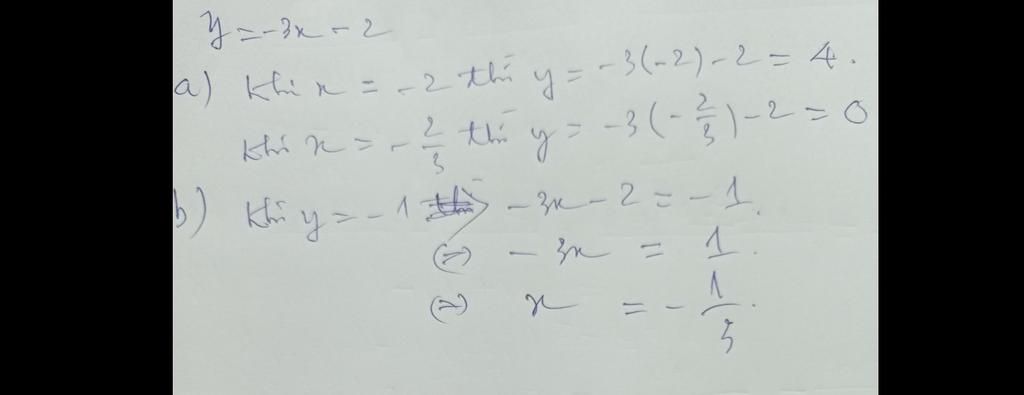 y = -3x - 2
a) Khi x = -2 thì y = -3(-2) - 2 = 4.
Khi x = -2/3 thì y = -3(-2/3) - 2 = 0
b) Khi y = -1 => -3x - 2 = -1.
(=) -3x = 1.
(=) x = -1/3.